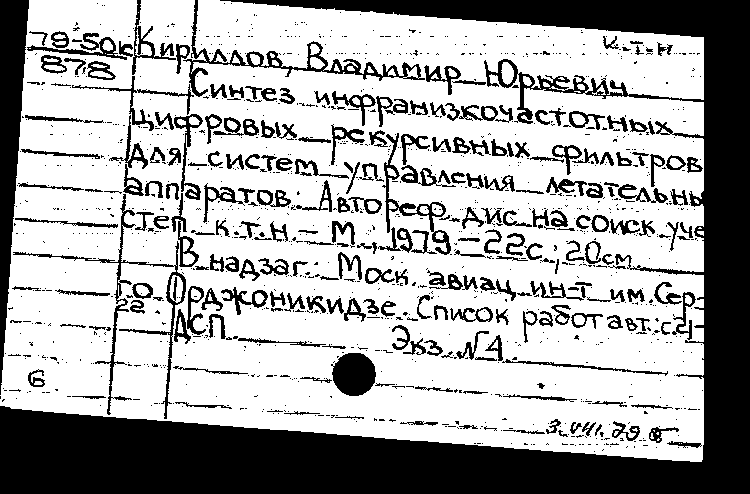 к.т.н
79-50к Кириллов, Владимир Юрьевич
878 Синтез инфранизкочастотных
цифровых рекурсивных фильтров
для систем управления летательны
аппаратов: Автореф. дис. на соиск. уче
степ. к.т.н. – М., 1979. – 22с.; 20см.
В надзаг.: Моск. авиац. ин-т им. Сер-
го Орджоникидзе. Список работ авт.: с.21-
22.
ДСП Экз. №4.
6
3.VII.79